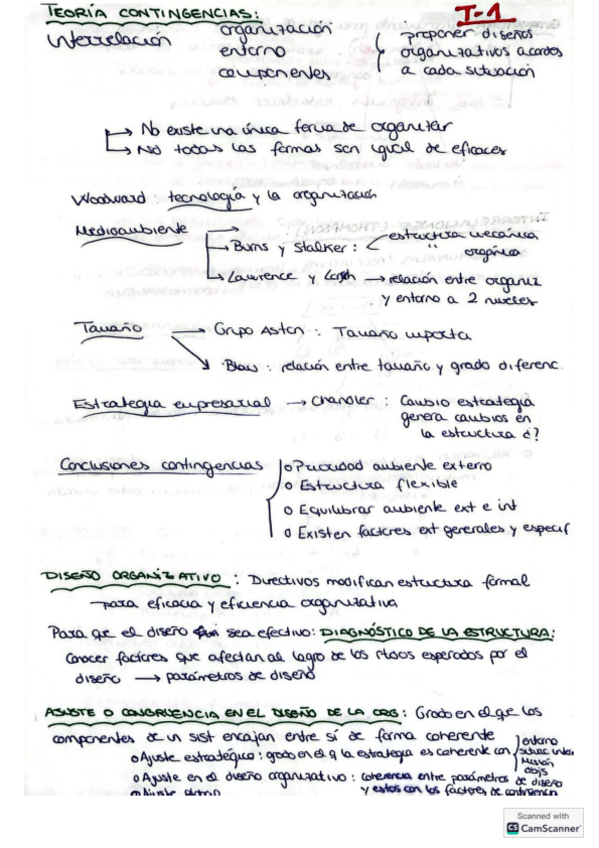 TEORÍA CONTINGENCIAS:
T-1
Interrelación
organización
y
entorno
componentes
proponer diseños
organizativos acordes
a cada situación
No existe una única forma de organizar
No todas las formas son igual de eficaces
Woodward: tecnología y la organización
Medioambiente
Burns y Stalker: estructura mecánica
" orgánica
Lawrence y Lorsh → relación entre organiz
y entorno a 2 niveles
Tamaño → Grupo Aston: Tamaño importa
Blau: relación entre tamaño y grado diferenc.
Estrategia empresarial → Chandler: Cambio estrategia
genera cambios en
la estructura ¿?
Conclusiones contingencias
o Prioridad ambiente externo
o Estructura flexible
o Equilibrar ambiente ext e int
o Existen factores ext generales y especif
DISEÑO ORGANIZATIVO: Directivos modifican estructura formal
para eficacia y eficiencia organizativa
Para que el diseño sea efectivo: DIAGNÓSTICO DE LA ESTRUCTURA:
Conocer factores que afectan al logro de los rtdos esperados por el
diseño → parámetros de diseño
AJUSTE O CONGRUENCIA EN EL DISEÑO DE LA ORG: Grado en el qe los
componentes de un sist encajan entre sí de forma coherente
o Ajuste estratégico: grado en el q la estrategia es coherente con
entorno
Misión
objs
o Ajuste en el diseño organizativo: coherencia entre parámetros de diseño
y estos con los factores de contingencia
o Ajuste
Scanned with
CS CamScanner